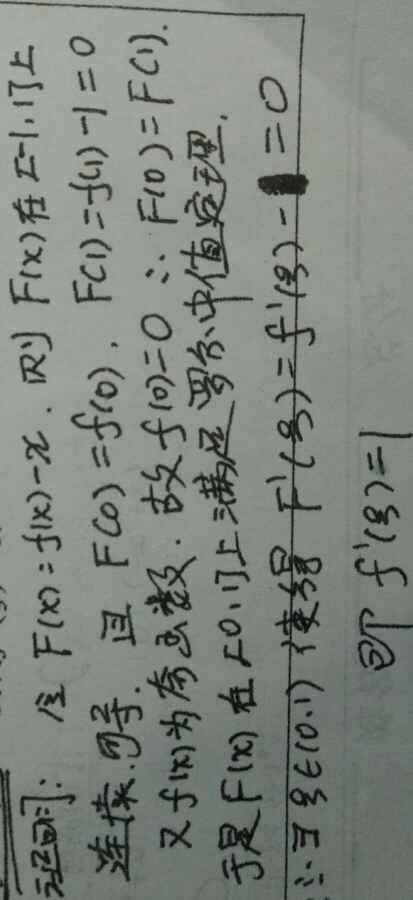 证明: 令 F(x)=f(x)-x. 则 F(x)在[-1,1]上
连续.可导. 且 F(0)=f(0). F(1)=f(1)-1=0
又f(x)为奇函数. 故f(0)=0 ∴ F(0)=F(1).
于是F(x)在[0,1]上满足罗尔中值定理.
∴∃ξ∈(0.1) 使得 F'(ξ)=f'(ξ)-1=0
即 f'(ξ)=1